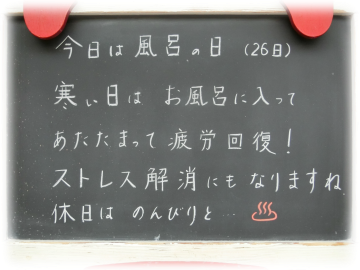 今日は風呂の日（26日）
寒い日は お風呂に入って
あたたまって疲労回復！
ストレス解消にもなりますね
休日は のんびりと… ♨